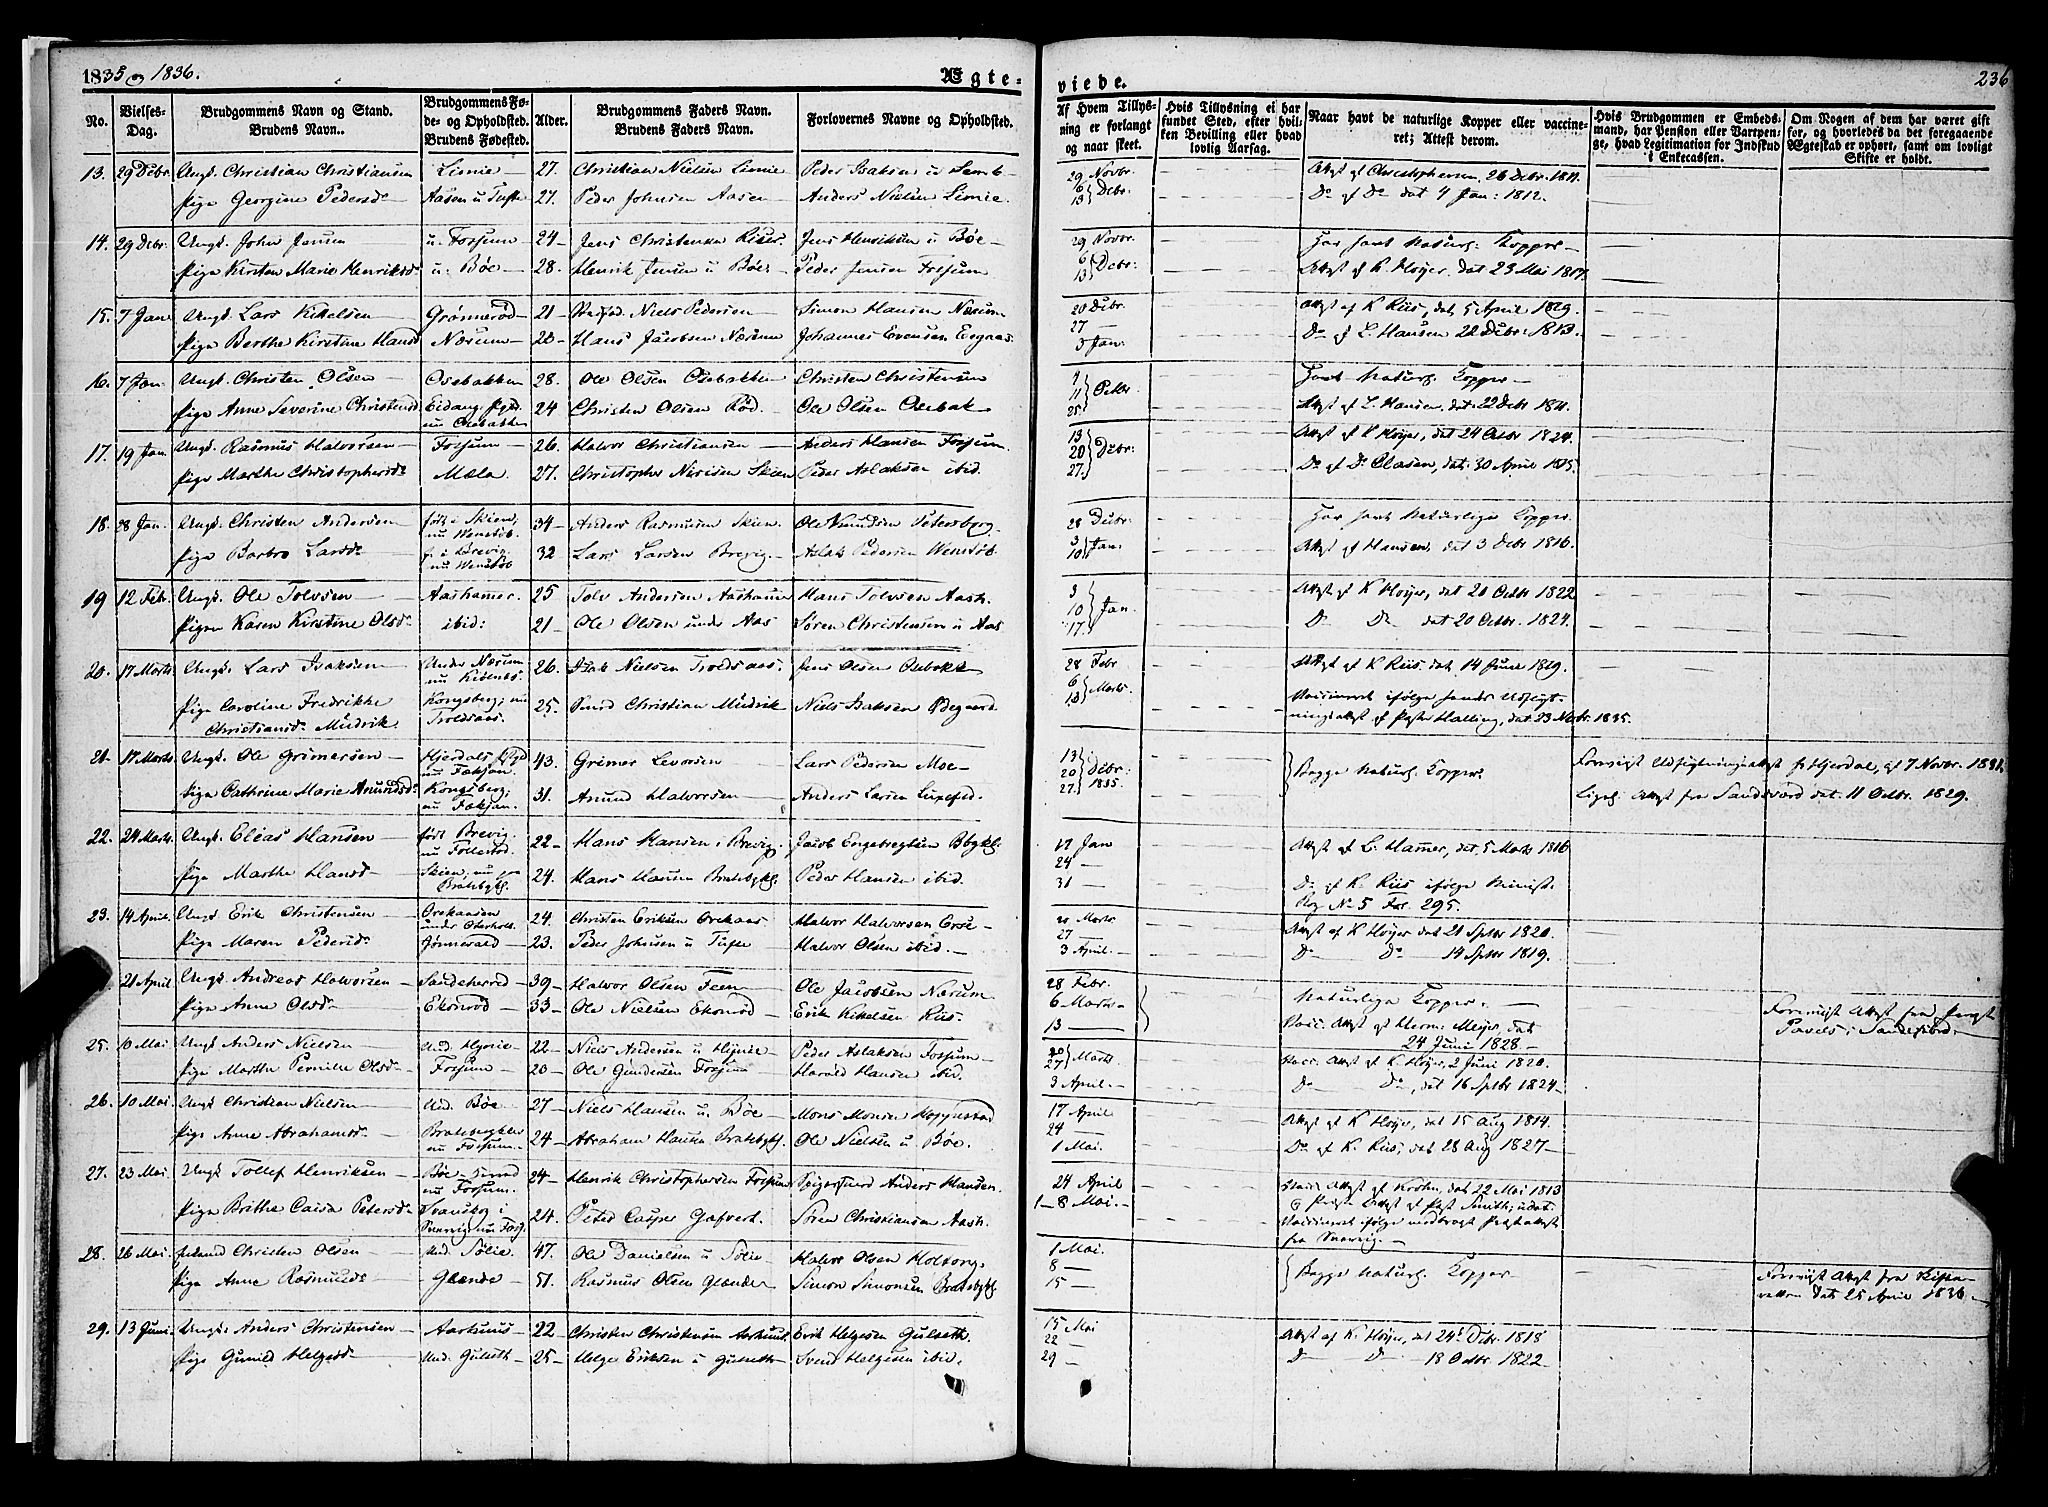 1835 og 1836.
Ægte-
viede.
236
No.
Vielses-Dag.
Brudgommens Navn og Stand. Brudens Navn..
Brudgommens Fø-de- og Opholdsted. Brudens Fødested.
Alder.
Brudgommens Faders Navn. Brudens Faders Navn.
Forlovernes Navne og Opholdsted.
Af Hvem Tillys-ning er forlangt og naar skeet.
Hvis Tillysning ei har fundet Sted, efter hvil-ken Bevilling eller hvad lovlig Aarsag.
Naar havt de naturlige Kopper eller vaccine-ret; Attest derom.
Hvis Brudgommen er Embeds-mand, har Pension eller Vartpen-ge, hvad Legitimation for Indskud i Enkecassen.
Om Nogen af dem har været gift for, og hvorledes da det foregaaende Ægteskab er ophørt, samt om lovligt Skifte er holdt.
13. 29 Debr. Ungk. Christian Christiansen Limie 27. Christian Nielsen Limie Peder Isaksen u 29 Novbr. Attest af Christophersen, 26 Debr. 1811.
Pige Georgine Pedersd. Aasen u Tufte 27. Peder Johnsen Aasen Anders Nielsen Limie. 6 13 Debr. Do af Do dat 4 Jan: 1812.
14. 29 Debr. Ungk. John Jensen u. Fossum 24 Jens Christensen Jens Henriksen u Bøe 29 Novbr. Har havt Naturl. Kopper
Pige Kirsten Marie Henriksd. u. Bøe 28. Henrik Jensen u Bøe Peder Jensen Fossum 6 13 Debr. Attest af K Høyer, dat 23 Mai 1817.
15. 7 Jan Ungk. Lars Kittelsen Grønnerød 21 Niels Pedersen Simon Hansen Nærum 20 Debr. Attest af K Riis, dat 5 April 1829.
Pige Berthe Kirstine Hansd Nærum 23 Hans Jacobsen Nærum Johannes Evensen 27 3 Jan: Do af L. Hansen 22 Debr: 1813.
16. 7 Jan. Ungk. Christen Olsen Osebakken 28. Ole Olsen Osebakken Christen Christensen 4 11 25 Octbr Havt Naturl. Kopper
Pige Anne Severine Christensd Eidang. Pgd. nu Osebakken 24 Christen Olsen Rød. Ole Olsen Osebak Attest af L. Hansen, dat: 22 Debr 1811.
17. 19 Jan. Ungk. Rasmus Halvorsen Fossum 26. Halvor Christiansen Anders Hansen Fossum 13 20 27. Debr: Attest af K Høyer, dat 24 Octbr 1824.
Pige Marthe Christophersd. Mæla 27. Christopher Nirisen Skien Peder Aslaksen ibid. Do af Dr Clasen, dat: 30 April 1815.
18. 28 Jan. Ungk. Christen Andersen født i Skien, nu Wenstøb 34 Anders Rasmusen Skien Ole Knudsen Petersborg. 28 Debr: Har havt Naturlige Kopper.
Pige Barbro Larsd. f. i Brevig nu Wenstøb 32 Lars Larsen Brevig. Aslak Pedersen Wenstøb 3 10 Jan: Attest af Hansen, dat 3 Debr 1816.
19 12 Febr. Ungk. Ole Tolvsen Aashamer. 25 Tolv Andersen Aashamer Hans Tolvsen Aash. 3 10 17. Jan. Attest af K Høyer, dat 20 Octbr 1822
Pigen Karen Kirstine Olsd. ibid: 21 Ole Olsen under Aas Søren Christensen u Aas Do Do dat 20 Octbr. 1824.
20. 17 Marts Ungk. Lars Isaksen Under Nærum nu Kiølnes. 26. Isak Nielsen Troldsaas. Jens Olsen Osebakk 28 Febr Attest af K Riis, dat 14 Juni 1829.
Pige Caroline Fredrikke Christiansd. Mudrik. Kongsberg; nu Troldsaas. 25. Christian Mudrik Niels Isaksen Ødegaard 6 13 Marts. Vaccineret ifølge hendes Udflyt-ningsattest af Pastor Halling, dat 23 Novbr. 1835.
21. 17 Marts Ungk. Ole Grimersen Hjerdals Pgd nu Faksan. 43. Grimer Levorsen Lars Pedersen Moe 13 20 27 Debr: 1835. Begge Naturl. Kopper. Foreviist Udflytningsattest fr Hjerdal, af 7 Novbr. 1831
Pige Cathrine Marie Anundsd. Kongsberg; nu Faksan. 31. Anund Halvorsen Anders Larsen Ligel. Attest fra Sandsværd dat: 11 Octbr. 1829.
22. 24 Marts. Ungk. Elias Hansen født Brevig nu Follestad. 22 Hans Hansen i Brevig Jacob Engebregtsen Bbgkl. 17 Jan Attest af L: Hammer, dat: 5 Marts 1816
Pige Marthe Hansd Skien, nu Bratsbgkl. 24. Hans Hansen Bratsbgkl. Peder Hansen ibid. 24 31 Do af K. Riis ifølge Minist. Bog No 5 Fol. 295.
23. 14 April. Ungk Erik Christensen Orekaasen under Oterholt. 24. Christen Eriksen Orekaas Halvor Halvorsen Grøe 20 Marts Attest af K Høyer dat 21 Septbr 1820.
Pige Maren Pedersd. Jønnevald 23. Peder Johnsen u Tufte Halvor Olsen ibid. 27 3 April. Do Do 14 Septbr 1819.
21 April Ungk. Andreas Halvorsen Sandeherred 39 Halvor Olsen Feen Ole Jacobsen Nærum 28 Febr. Naturlige Kopper.
Pige Anne Olsd. Ekonrød 33 Ole Nielsen Ekonrød Erik Kittelsen Riis. 6 Marts 13 Vacc. Attest af Herm: Meyer, dat 24 Juni 1828. Foreviist Attest fra Provst Pavels i Sandeherred.
25. 10 Mai Ungk Anders Nielsen Und. Hynie 22 Niels Andersen u Hynie Peder Aslaksen Fossum 20 27 Marts. Vacc. Attest af K. Høyer, 2 Juni 1820.
Pige Marthe Pernille Olsd. Fossum 20 Ole Gundersen Fossum Harald Hansen ibid. 3 April. Do Do, dat 16 Septbr 1824.
26. 10 Mai. Ungk Christian Nielsen Und. Bøe 27 Niels Hansen u. Bøe Mons Monsen 17 April Attest af K Høyer, dat 15 Aug 1814.
Pige Anne Abrahamsd. Bratsbergklev nu Fossum. 24 Abraham Hansen Bratsbgkl. Ole Nielsen u. Bøe. 24 1 Mai. Do af K. Riis, dat 28 Aug 1827
27. 23 Mai. Ungk. Tollef Henriksen nu Fossum. 24 Henrik Christophersen Fossum Anders Hansen. 24 April Vacc. Attest af Krohn, dat 22 Mai 1813
Pige Brithe Caisa Petersd. Svanskog i Sverrig nu Foss. 24. Peter Casper Gafvert. Søren Christiansen Aash. 1 8 Mai. Vaccineret ifølge medbragt Præsteattest fra Sverrig.
28. 26 Mai. Christen Olsen und. Sølie. 47. Ole Danielsen u Sølie Halvor Olsen Holtorg. 1 Mai. 8 15 Begge Naturl. Kopper
Pige Anne Rasmusd. Glænde 51. Rasmus Olsen Glænde Simon Simonsen Bratsbgkl. Foreviist Attest fra Skifte-retten dat 25 April 1836.
29. 13 Juni. Ungk. Anders Christensen Aarhuus 22 Christen Christensen Aarhuus. Erik Helgesen Gulseth. 15 Mai Attest af K. Høyer, dat 24 Debr. 1818
Pige Gunild Helgesd. Und. Gulseth 25 Helge Eriksen u Gulseth Svend Helgesen ibid. 22 29 Do Do 18 Octbr 1822